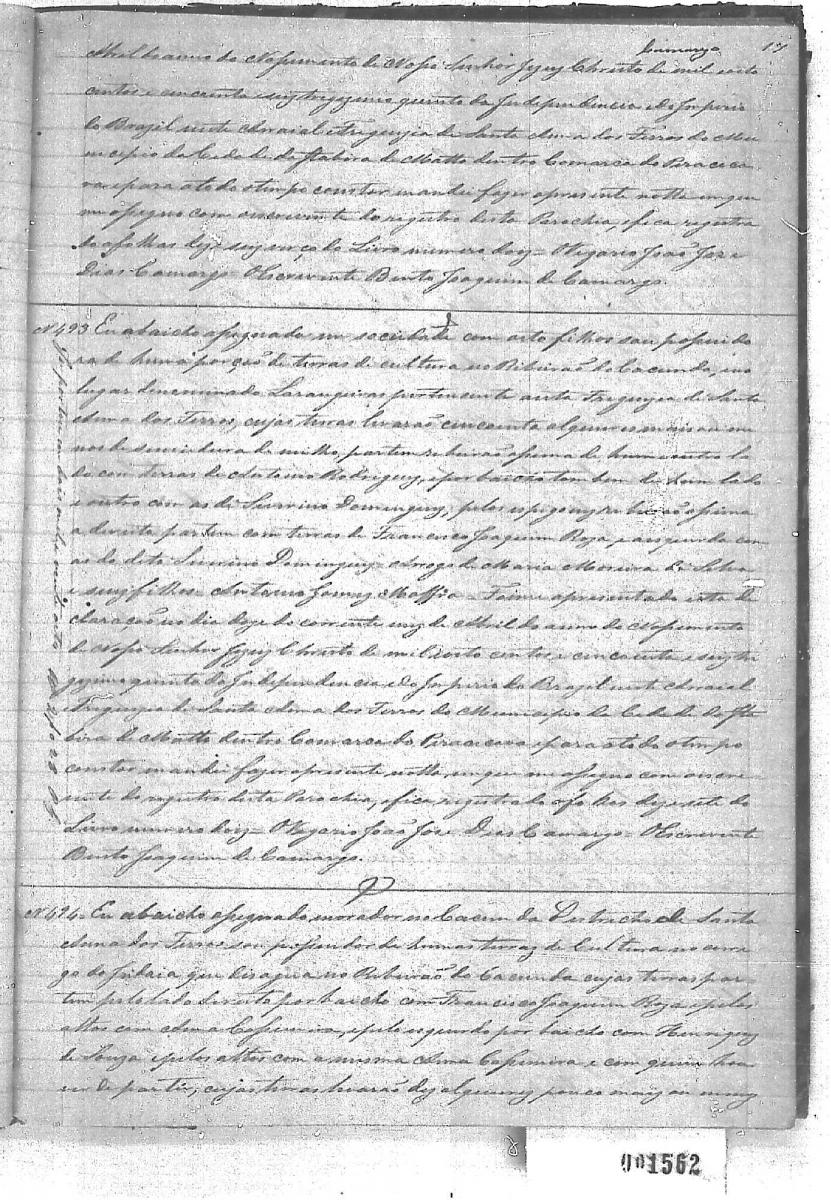 Camargo 17
Abril do anno do Nassimento de Nosso Senhor Jezuz Christo de mil e oito
centos e cincoenta e seiz trigezimo quinto da Independencia e do Imperio
do Brazil neste Arraial e Freguezia de Santa Anna dos Ferros do Mu
nicipio da Cidade da Itabira de Matto dentro Comarca do Piracica
va e para a todo o tempo constar mandei fazer a presente notta em que
me assigno com o escrevente do registro desta Parochia, e fica registra
do a folhas dezeseiz do Livro numero doiz = O Vigario João Joze
Dias Camargo = O Escrevente Bento Joaquim de Camargo.
N 493 Eu abaicho assignada em sociedade com oito filhos sou possuido
ra de huma porção de terras de cultura no Ribeirão do Cacunda, no
lugar denominado Larangeiras pertencente a esta Freguezia de Santa
Anna dos Ferros, cujas terras levarão cincoenta alqueires mais ou me
nos de semeadura de milho, partem ribeirão assima de hum e outro la
do com terras de Antonio Rodriguez, e por baicho tambem de hum lado
e outro com as de Severino Dominguez, pelos espigoens ribeirão assima
a direita partem com terras de Francisco Joaquim Roza, e a esquerda com
as do dito Severino Dominguez = Arrogo de Maria Moreira da Silva
e seuz filhos = Antonio Gomez Maffia = Foi me apresentada esta de
claração no dia doze do corrente mez de Abril do anno do Nassimento
de Nosso Senhor Jezuz Christo de mil e oito centos e cincoenta e seiz tri
gezimo quinto da Independencia e do Imperio do Brazil neste Arraial
e Freguezia de Santa Anna dos Ferros do Municipio da Cidade da Ita
bira de Matto dentro Comarca do Piracicava e para a todo o tempo
constar mandei fazer a presente notta, em que me assigno com o escre
vente do registro desta Parochia, e fica registrado a folhas dezesete do
Livro numero doiz = O Vigario João Joze Dias Camargo = O Escrevente
Bento Joaquim de Camargo.
N 494 = Eu abaicho assignado, morador no Cacunda Destricto de Santa
Anna dos Ferros sou possuidor de humas terraz de Cultura no corre
go do que desagua no Ribeirão do Cacunda cujas terras par
tem pelo lado direito por baicho com Francisco Joaquim Roza e pelos
altos com Anna Cassemira, e pelo esquerdo por baicho com Henriquez
de Souza e pelos altos com a mesma Anna Cassemira e com quem hou
ver de partir, cujas terras levarão dez alqueirez pouco maiz ou menoz
001562